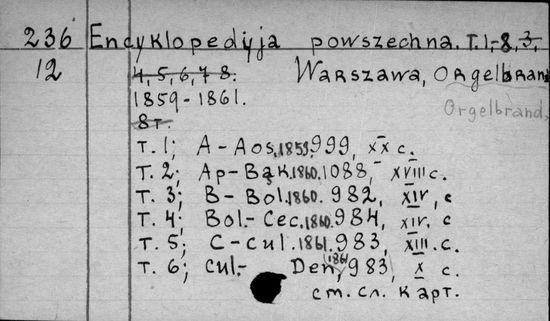 236 Encyklopedyja powszechna. T. 1-8, 3,
12 4, 5, 6, 7 8. Warszawa, Orgelbrand
1859-1861. Orgelbrand,
8т.
т. 1; A-Aos, 1859, 999, XX с.
т. 2; Ap-Bąk. 1860. 1088, XVIII с.
т. 3; B-Bol. 1860. 982, XIV, с
т. 4; Bol.-Cec. 1860. 984, XIV. с
т. 5; C-Cul. 1861. 983, XIII. с.
т. 6; Cul.- Den, 1861 983, X с.
см. сл. карт.